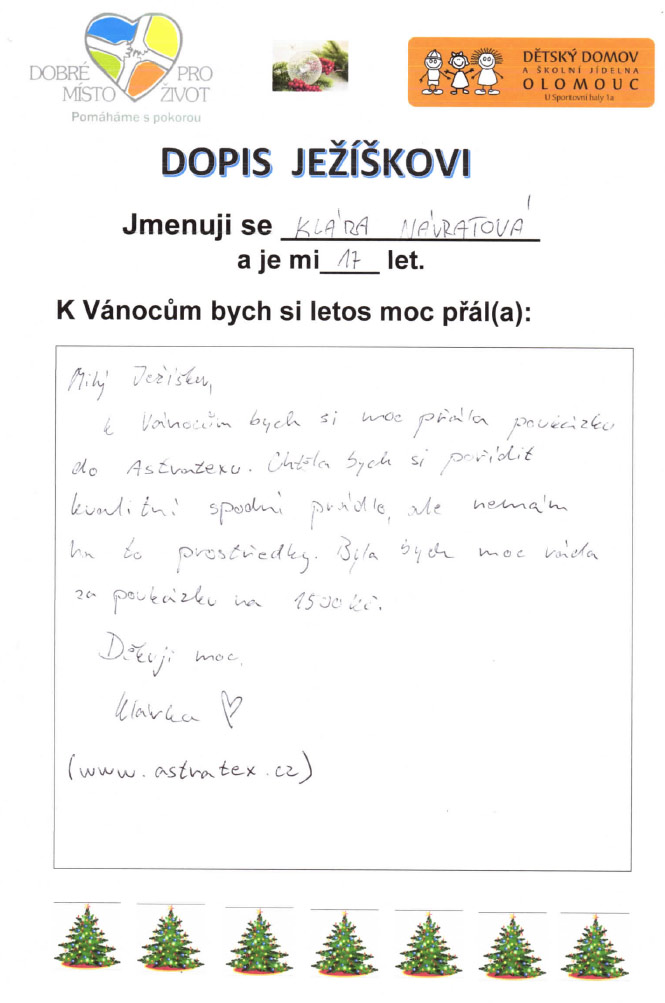 DOBRÉ PRO
MÍSTO ŽIVOT
Pomáháme s pokorou
DĚTSKÝ DOMOV
A ŠKOLNÍ JÍDELNA
OLOMOUC
U Sportovní haly 1a
DOPIS JEŽÍŠKOVI
Jmenuji se KLÁRA NÁVRATOVÁ
a je mi 17 let.
K Vánocům bych si letos moc přál(a):
Milý Ježíšku,
k Vánocům bych si moc přála poukázku
do Astratexu. Chtěla bych si pořídit
kvalitní spodní prádlo, ale nemám
na to prostředky. Byla bych moc ráda
za poukázku na 1500 kč.
Děkuji moc.
Klárka
(www.astratex.cz)